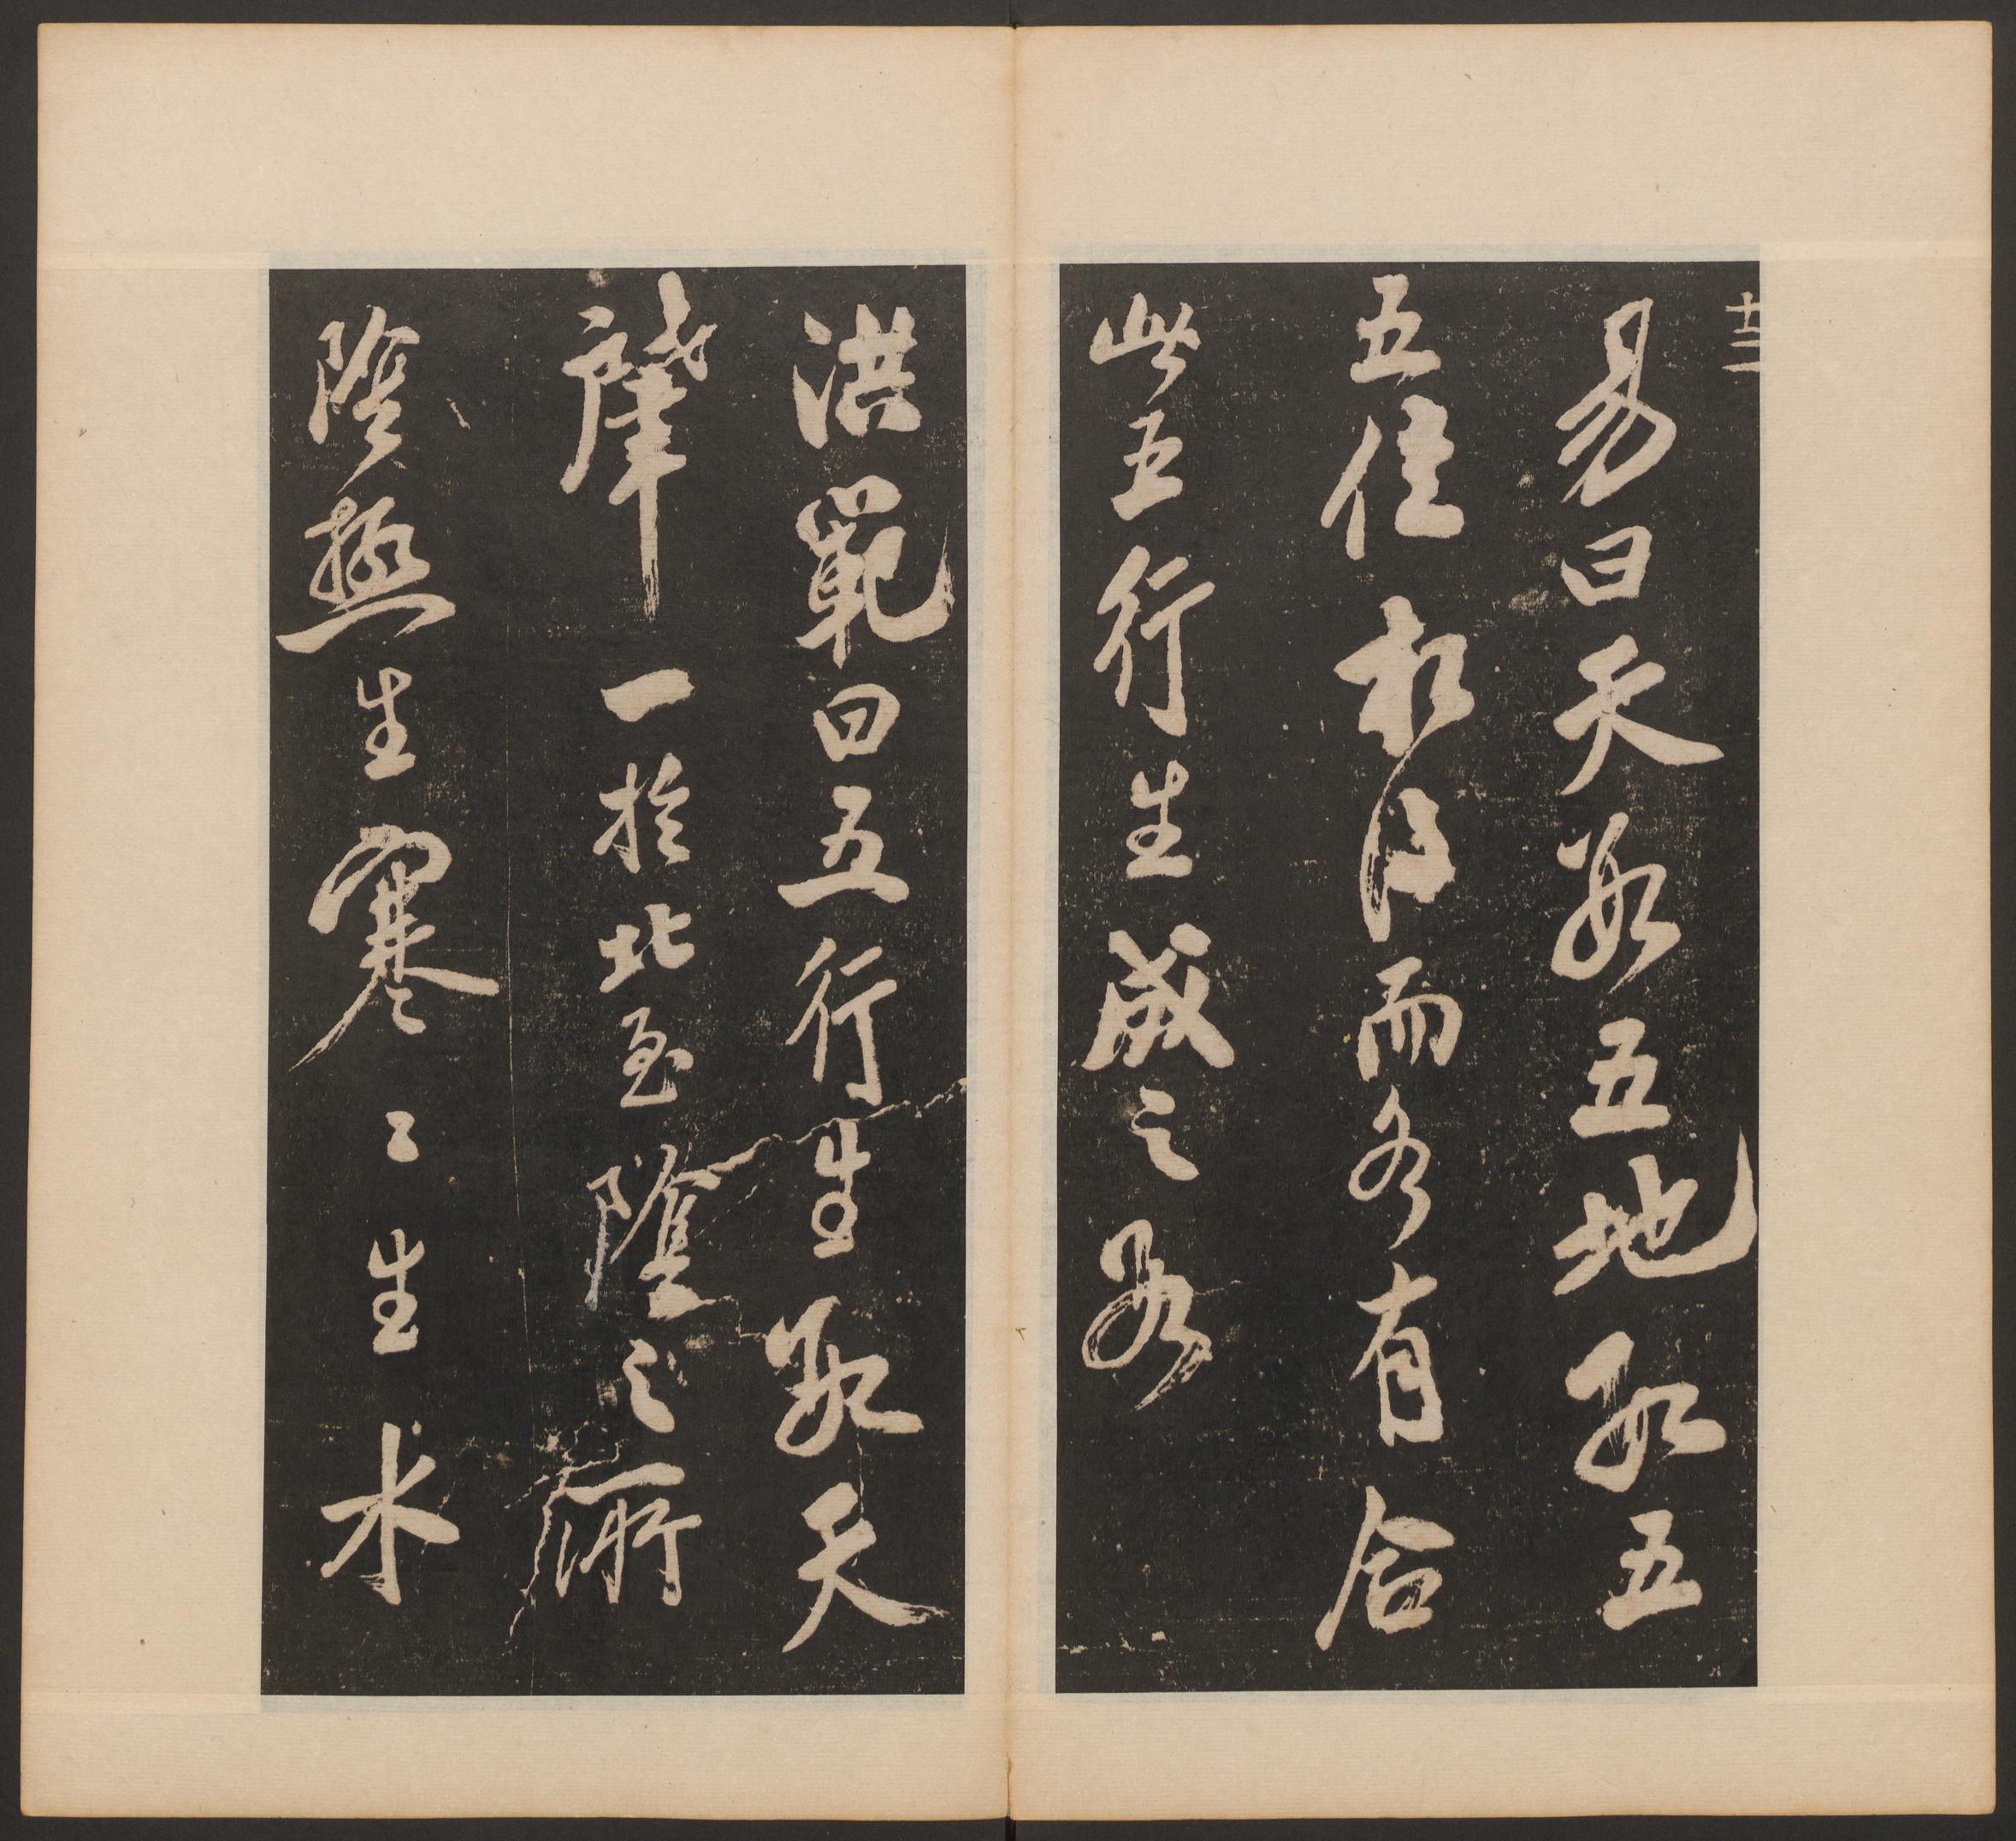 十二
易曰天數五地數五
五位相得而各有合
此五行生成之數
洪範曰五行生數天
肇一於北至陰之所
陰極生寒〻生水